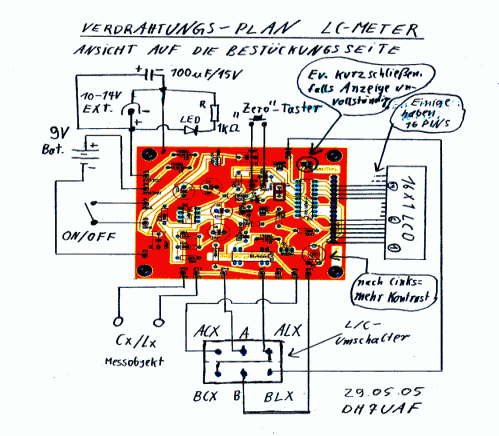 VERDRAHTUNGS-PLAN LC-METER
ANSICHT AUF DIE BESTÜCKUNGSSEITE
+ 100µF/15V
10-14V
EXT.
R
1kΩ
LED
"Zero"-Taster
Ev. kurzschließen,
falls Anzeige un-
vollständig
Einige
haben
16 PINS
9V
Bat.
16X1 LCD
ON/OFF
nach links=
mehr Kontrast
Cx/Lx
Messobjekt
ACX A ALX
L/C-
Umschalter
BCX B BLX
29.05.05
DH7UAF